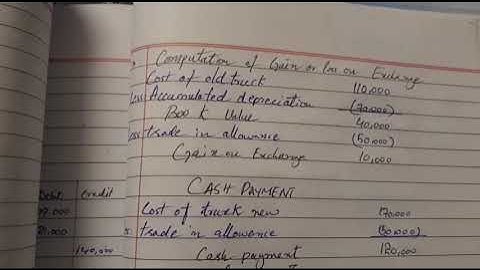 Computation of Gain or loss on Exchange
Cost of old truck 110,000
Less Accumulated depreciation (70,000)
Book Value 40,000
Less trade in allowance (50,000)
Gain on Exchange 10,000
CASH PAYMENT
Debit Credit
Cost of truck new 170,000
trade in allowance (50,000)
Cash payment 120,000